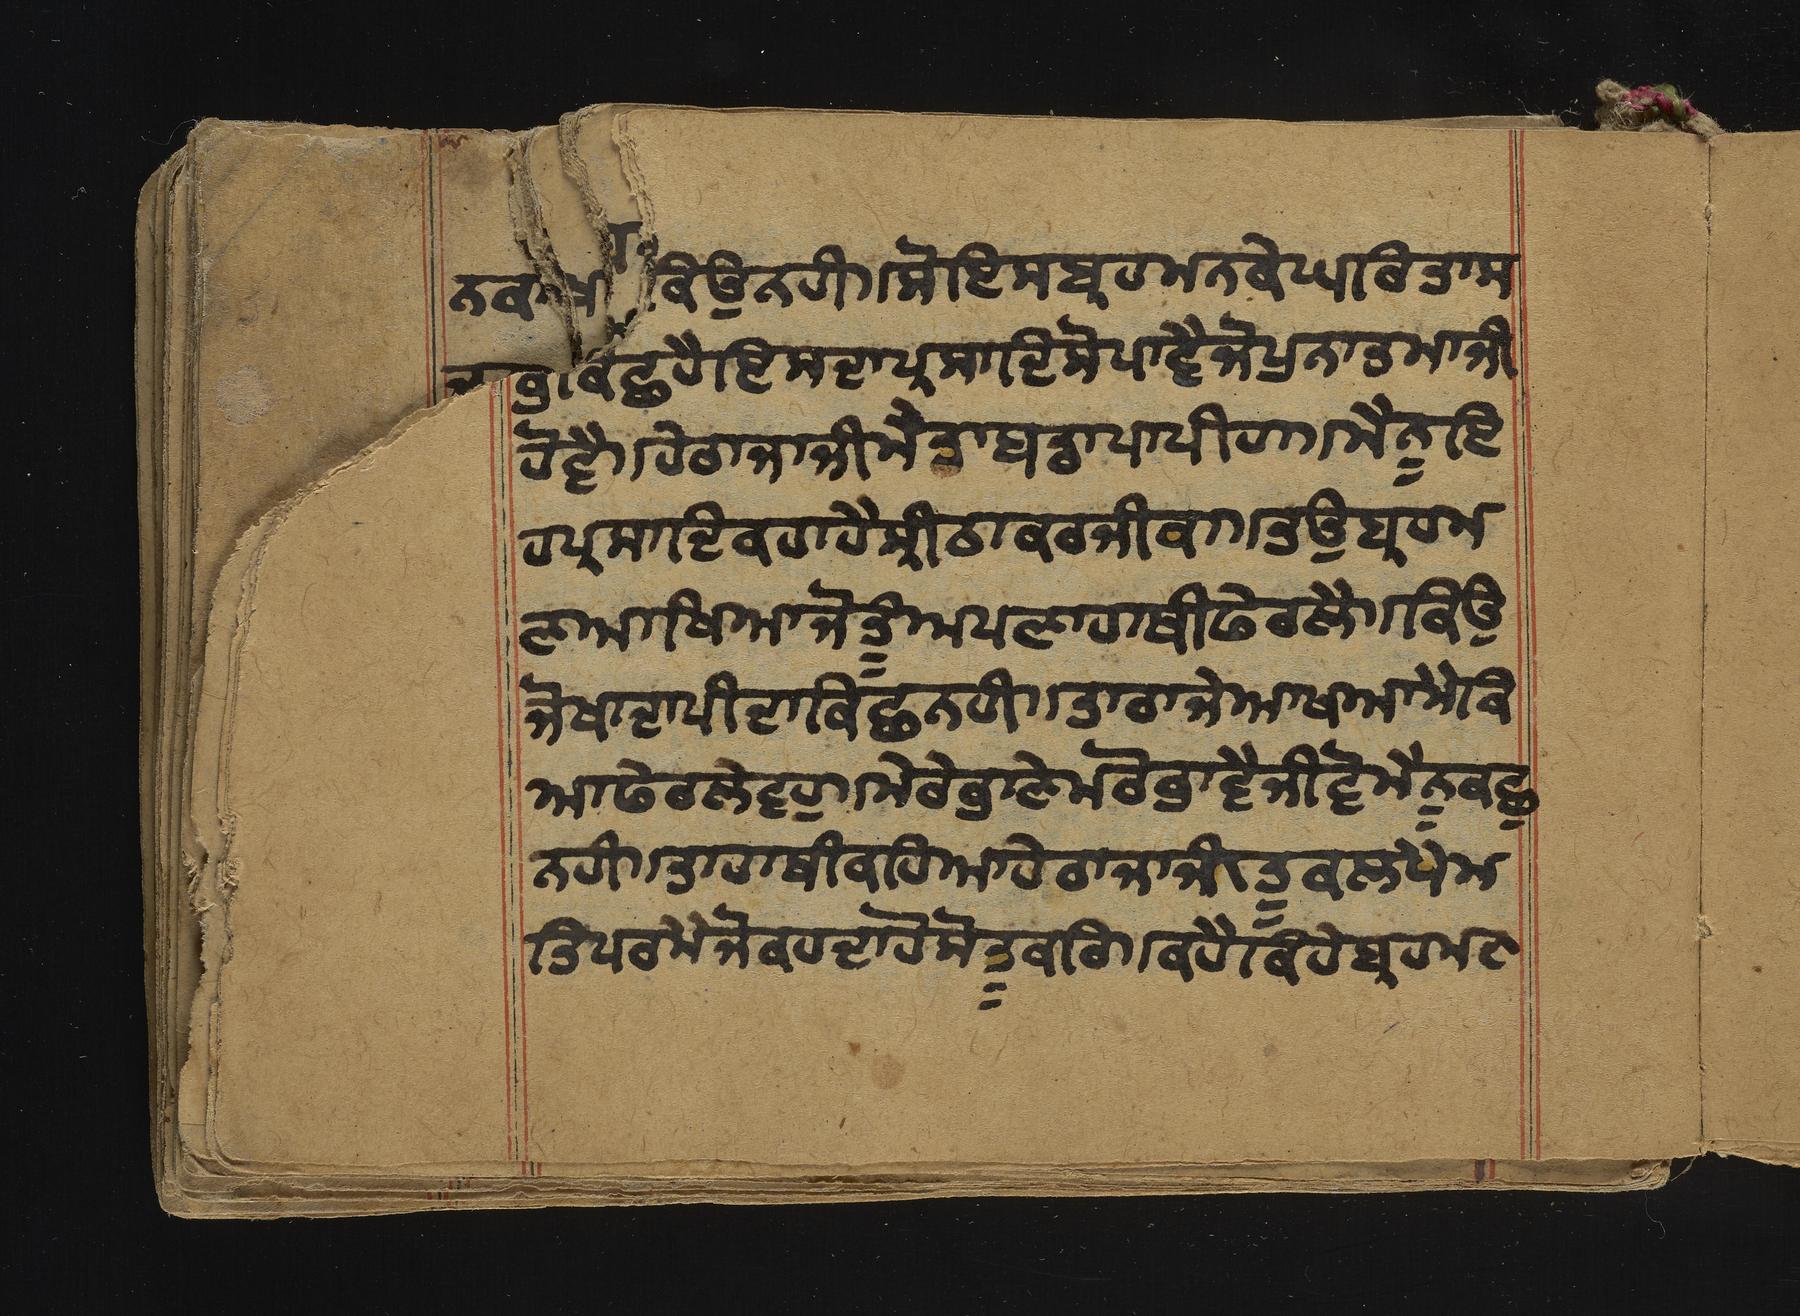 ਕਿਉਨਹੀ।ਸੋਇਸਬ੍ਰਹਮਨਕੇਘਰਿਤਾਸ
ਕਿਛੁਹੈਇਸਦਾਪ੍ਰਸਾਦਿਸੋਪਾਵੈਜੋਪੁਨਾਤਮਾਜੀ
ਹੋਵੈ।ਹੇਰਾਜਾਜੀਮੈਤਾਬਡਾਪਾਪੀਹਾ।ਮੈਨੂਇ
ਹਪ੍ਰਸਾਦਿਕਹਾਹੈਸ੍ਰੀਠਾਕਰਜੀਕਾ।ਤਉਬ੍ਰਹਮ
ਣਆਖਿਆਜੋਤੂੰਅਪਣਾਹਾਥੀਫੇਰਲੈ।ਕਿਉ
ਜੋਖਾਦਾਪੀਦਾਕਿਛੁਨਹੀ।ਤਾਰਾਜੇਆਖਆਮੈਕਿ
ਆਫੇਰਲੇਵਹੁ।ਮੇਰੇਭਾਣੇਮਰੋਭਾਵੈਜੀਵੋਮੈਨੂਕਛੁ
ਨਹੀ।ਤਾਹਾਥੀਕਹਿਆਹੇਰਾਜਾਜੀ।ਤੂਕਲਪੇਮ
ਤਿਪਰਮੈਜੋਕਹਦਾਹੋਸੋਤੂਕਰਿ।ਕਹੈਕਿਹੇਬ੍ਰਹਮਣ